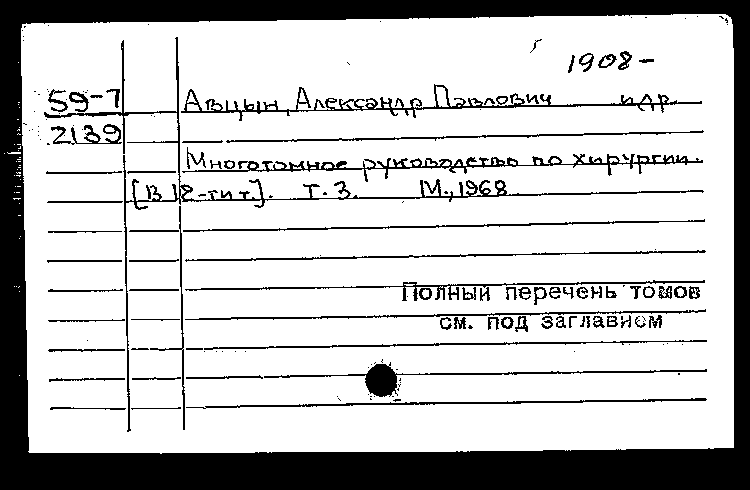 1908-
59-7
2139
Авцын, Александр Павлович и др.
Многотомное руководство по хирургии.
[В 12-ти т.]. Т. 3. М., 1968
Полный перечень томов
см. под заглавием